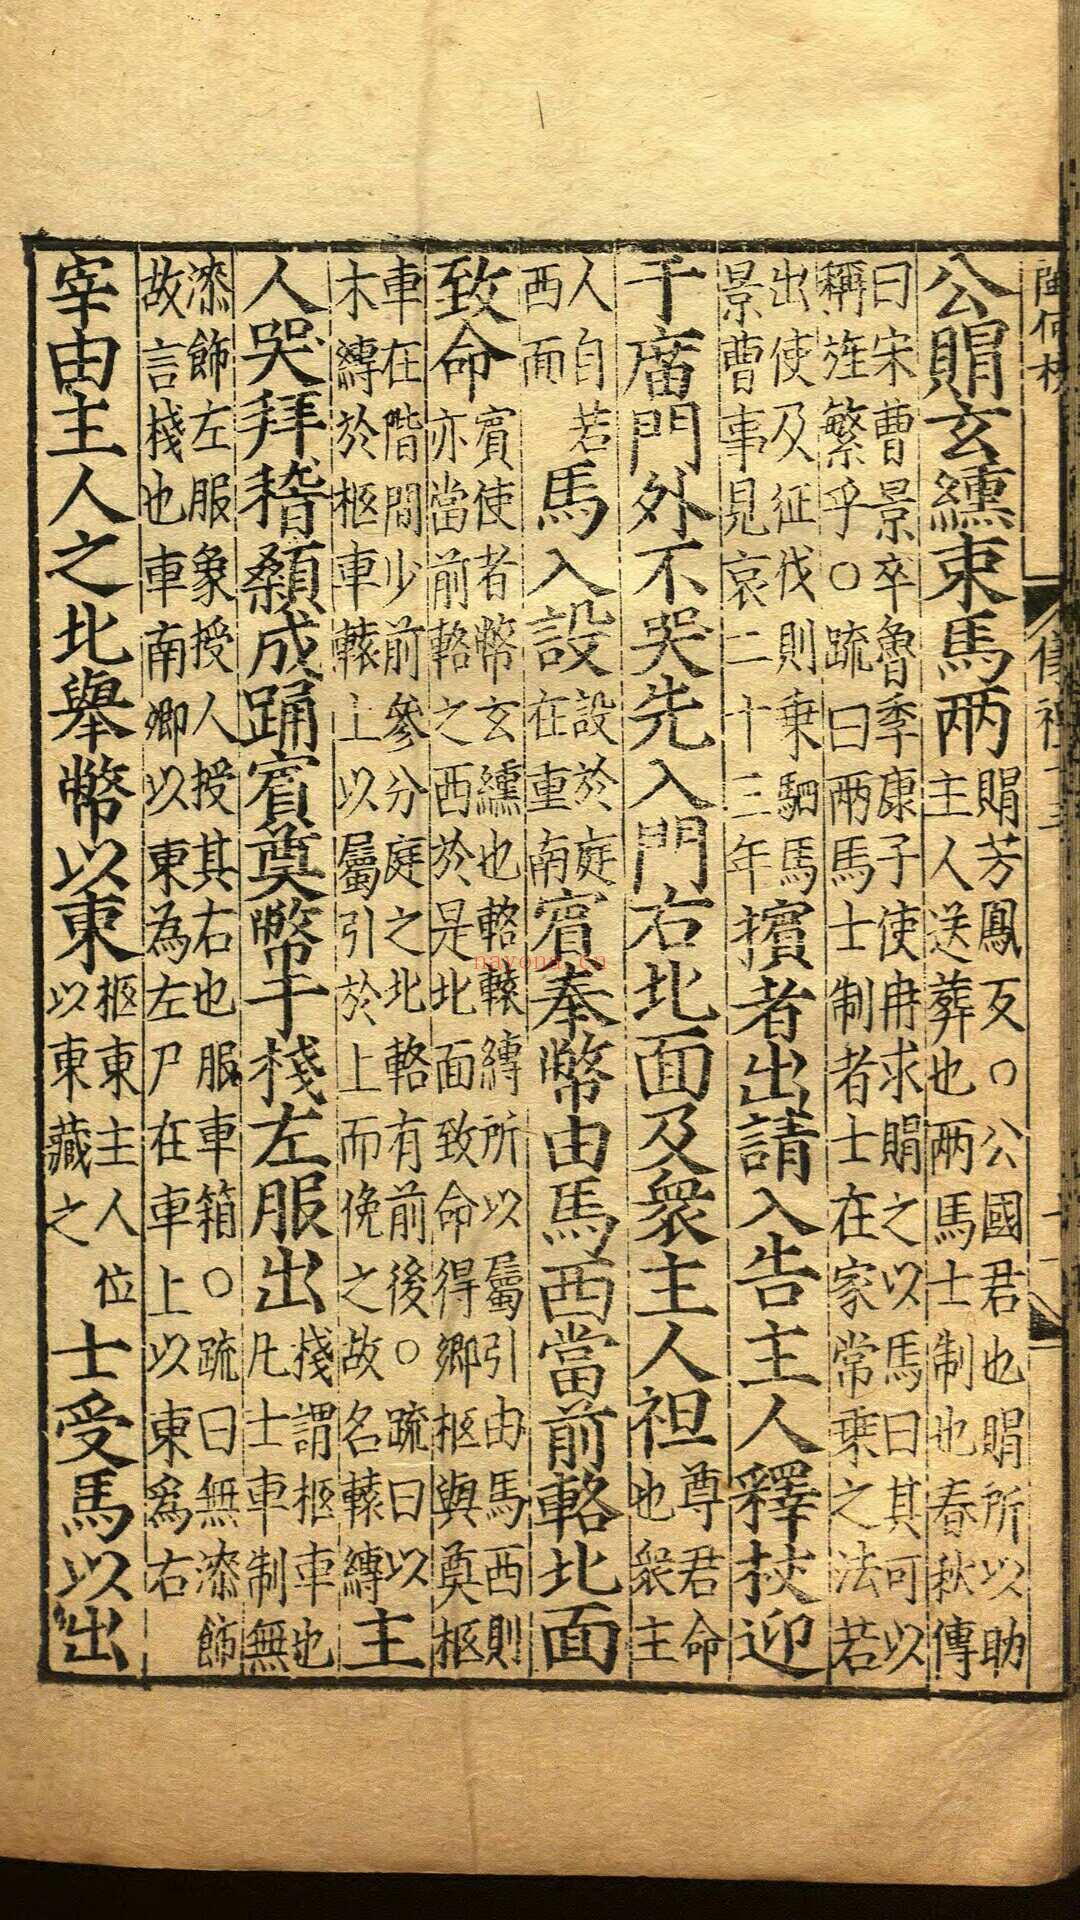 公賵玄纁束馬兩賵芳鳳反○公國君也賵所以助主人送葬也兩馬士制也春秋傳
曰宋曹景卒魯季康子使冉求賵之以馬曰其可以稱旌繁乎○疏曰兩馬士制者士在家常乗之法若
出使及征伐則乗駟馬景曹事見哀二十三年擯者出請入告主人釋杖迎
于廟門外不哭先入門右北面及衆主人袒尊君命也衆主
人自若西面馬入設設於庭在重南賓奉幣由馬西當前輅北面
致命賓使者幣玄纁也輅轅縛所以屬引由馬西則亦當前輅之西於是北面致命得鄉柩與奠柩
車在階間少前參分庭之北輅有前後○疏曰以木縛於柩車轅上以屬引於上而俛之故名轅縛主
人哭拜稽顙成踊賓奠幣于棧左服出棧謂柩車也凡士車制無
漆飾左服象授人授其右也服車箱○疏曰無漆飾故言棧也車南鄉以東為左尸在車上以東爲右
宰由主人之北舉幣以東柩東主人位以東藏之士受馬以出
nayona.cn